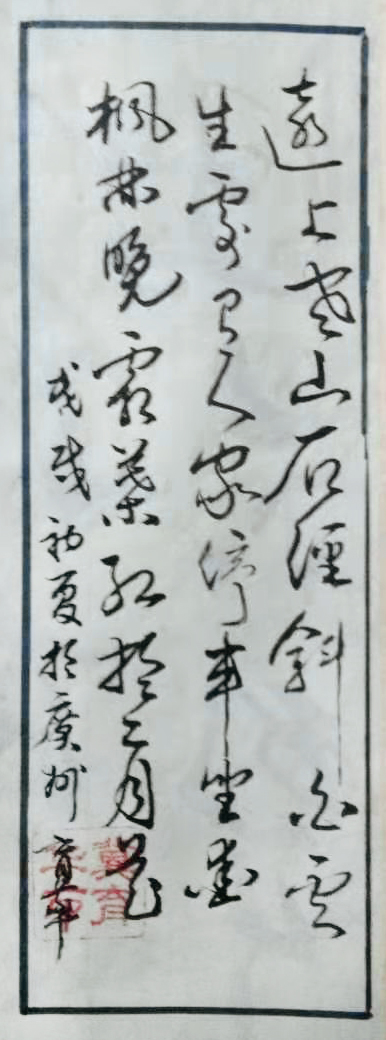 遠上寒山石径斜白雲
生處有人家停車坐愛
楓林晚霜葉紅於二月花
戊戌初夏於廣州育華